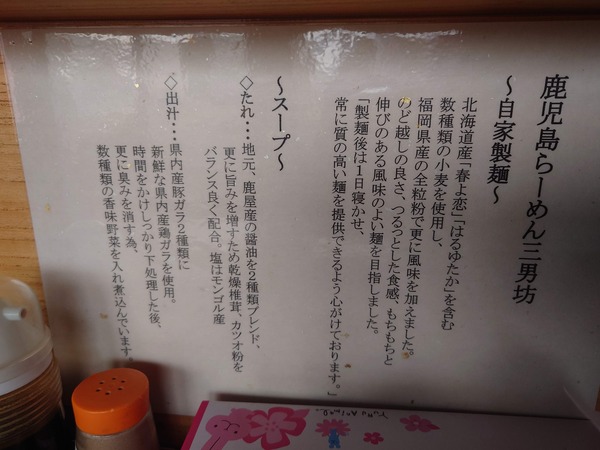 鹿児島らーめん三男坊
～自家製麺～
北海道産「春よ恋」「はるゆたか」を含む
数種類の小麦を使用し、
福岡県産の全粒粉で更に風味を加えました。
のど越しの良さ、つるっとした食感、もちもちと
伸びのある風味のよい麺を目指しました。
「製麺後は1日寝かせ、
常に質の高い麺を提供できるよう心がけております。」
～スープ～
◇たれ・・・地元、鹿屋産の醤油を2種類ブレンド、
更に旨みを増すため乾燥椎茸、カツオ粉を
バランス良く配合。塩はモンゴル産
◇出汁・・・県内産豚ガラ2種類に
新鮮な県内産鶏ガラを使用。
時間をかけしっかり下処理した後、
更に臭みを消す為、
数種類の香味野菜を入れ煮込んでいます。